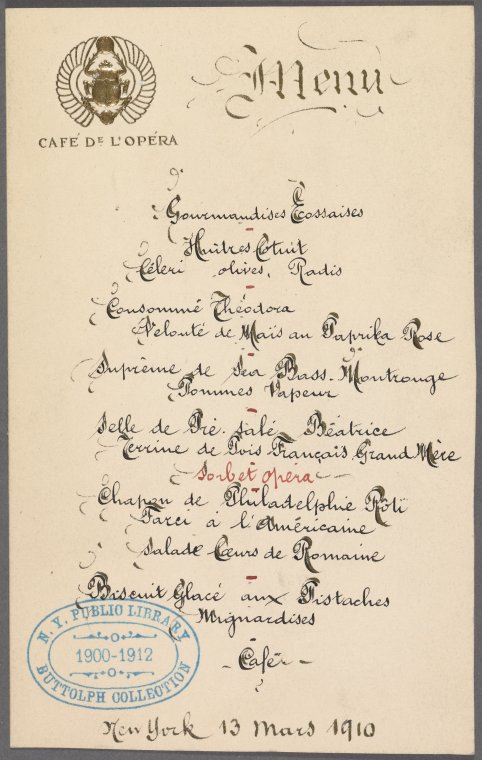 CAFÉ DE L'OPÉRA
Menu
Gourmandises Écossaises
Huîtres Cotuit
Céleri olives, Radis
Consommé Théodora
Velouté de Maïs au Paprika Rose
Suprême de Sea Bass. Montrouge
Pommes Vapeur
Selle de Pré. salé Béatrice
Terrine de Pois Français Grand Mère
Sorbet opéra
Chapon de Philadelphie Rôti
Farci à l'Américaine
Salade Cœurs de Romaine
Biscuit Glacé aux Pistaches
Mignardises
Café
N. Y. PUBLIC LIBRARY
1900-1912
BUTTOLPH COLLECTION
New York 13 Mars 1910